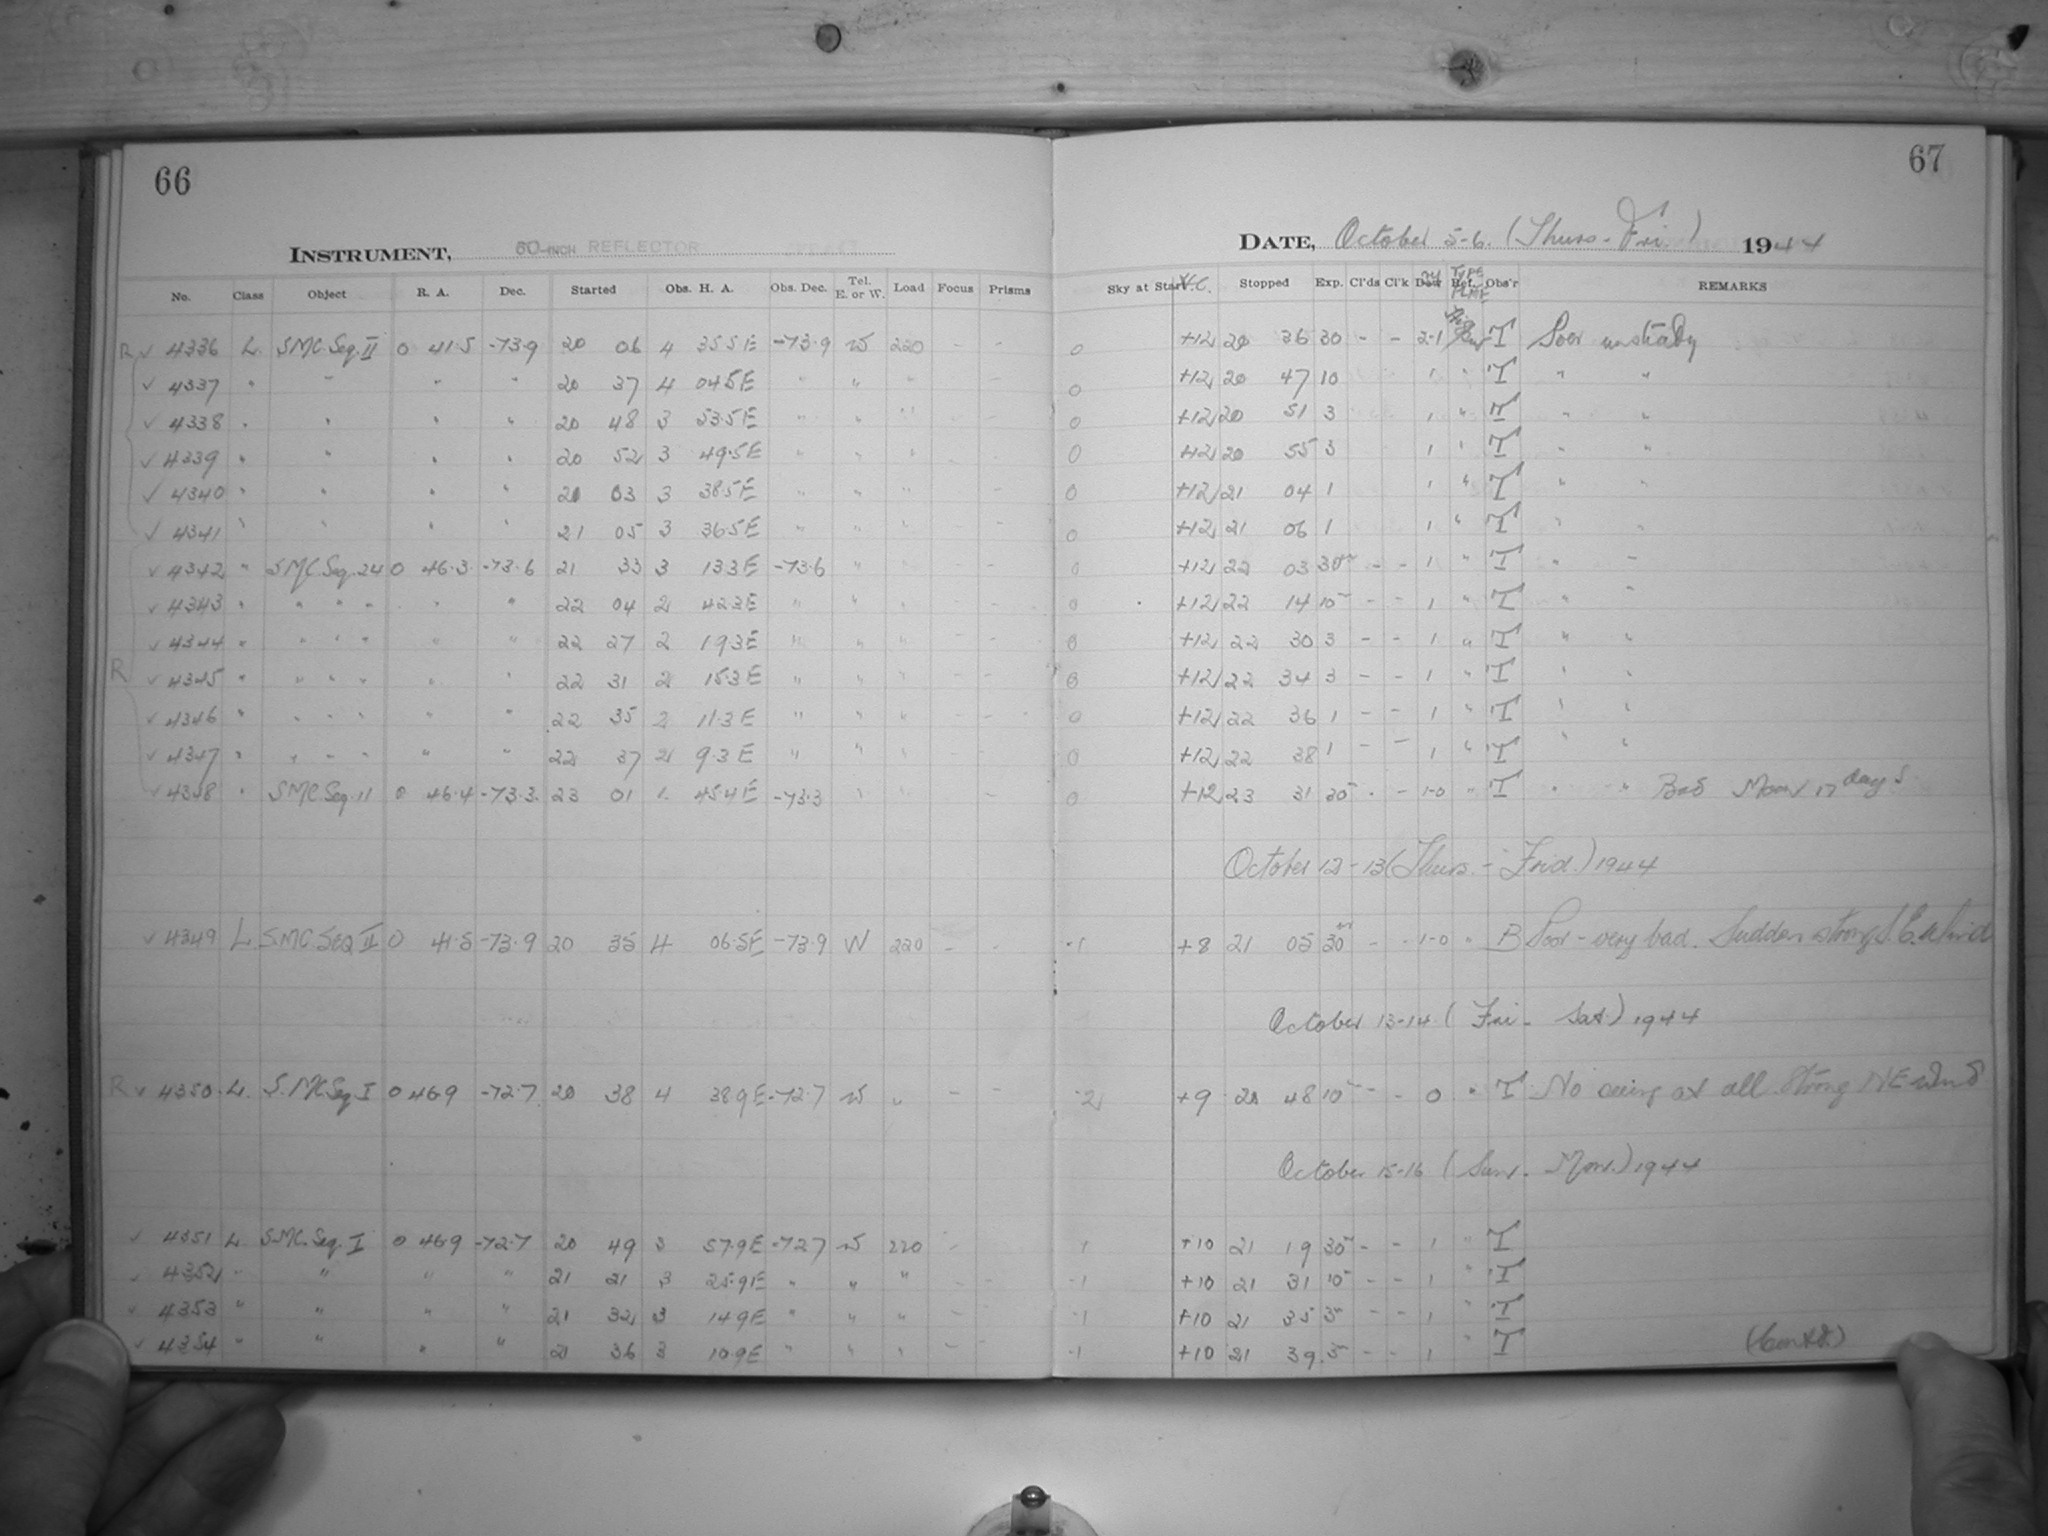 66
67
INSTRUMENT, 60-INCH REFLECTOR
DATE, October 5-6. (Thurs - Fri.) 1944
No. Class Object R. A. Dec. Started Obs. H. A. Obs. Dec. Tel. E. or W. Load Focus Prisms Sky at Start °C. Stopped Exp. Cl'ds Cl'k TYPE PLATE Obs'r REMARKS
R ✓ 4336 L SMC Seq. II 0 41.5 -73.9 20 06 4 35.5 E -73.9 W 220 - - 0 +12 20 36 30 - - 2-1 T Poor unsteady
✓ 4337 " " " " 20 37 4 04.5 E " " " - - 0 +12 20 47 10 1 " T " "
✓ 4338 " " " " 20 48 3 53.5 E " " " - - 0 +12 20 51 3 1 " T " "
✓ 4339 " " " " 20 52 3 49.5 E " " " - - 0 +12 20 55 3 1 " T " "
✓ 4340 " " " " 21 03 3 38.5 E " " " - - 0 +12 21 04 1 1 " T " "
✓ 4341 " " " " 21 05 3 36.5 E " " " - - 0 +12 21 06 1 1 " T " "
✓ 4342 " SMC Seq. 24 0 46.3 -73.6 21 33 3 13.3 E -73.6 " " - - 0 +12 22 03 30m - - 1 " T " "
✓ 4343 " " " " " " 22 04 2 42.3 E " " " - - 0 +12 22 14 10 - - 1 " T " "
✓ 4344 " " " " " " 22 27 2 19.3 E " " " - - 0 +12 22 30 3 - - 1 " T " "
R ✓ 4345 " " " " " " 22 31 2 15.3 E " " " - - 0 +12 22 34 3 - - 1 " T " "
✓ 4346 " " " " " " 22 35 2 11.3 E " " " - - 0 +12 22 36 1 - - 1 " T " "
✓ 4347 " " " " " " 22 37 2 9.3 E " " " - - 0 +12 22 38 1 - - 1 " T " "
✓ 4348 " SMC Seq. 11 0 46.4 -73.3 23 01 1 45.4 E -73.3 " " - - 0 +12 23 31 30 - - 1-0 " T " " Bad Moon 17 days
October 12-13 (Thurs. - Frid.) 1944
✓ 4349 L SMC SEQ II 0 41.5 -73.9 20 35 4 06.5 E -73.9 W 220 - - -1 +8 21 05 30m - - 1-0 " B Poor - very bad. Sudden strong S.E. Wind
October 13-14 (Fri - Sat) 1944
R ✓ 4350 L S.MC Seq I 0 46.9 -72.7 20 38 4 38.9 E -72.7 W " - - -2 +9 20 48 10 - - 0 " T No seeing at all Strong NE wind
October 15-16 (Sun. - Mon.) 1944
✓ 4351 L SMC Seq. I 0 46.9 -72.7 20 49 3 57.9 E -72.7 W 220 - -1 +10 21 19 30 - - 1 " T
✓ 4352 " " " " 21 21 3 25.9 E " " " - - -1 +10 21 31 10 - - 1 " T
✓ 4353 " " " " 21 32 3 14.9 E " " " - -1 +10 21 35 3m - - 1 " T
✓ 4354 " " " " 21 36 3 10.9 E " " " - - -1 +10 21 39 3 - - 1 " T
(Contd.)